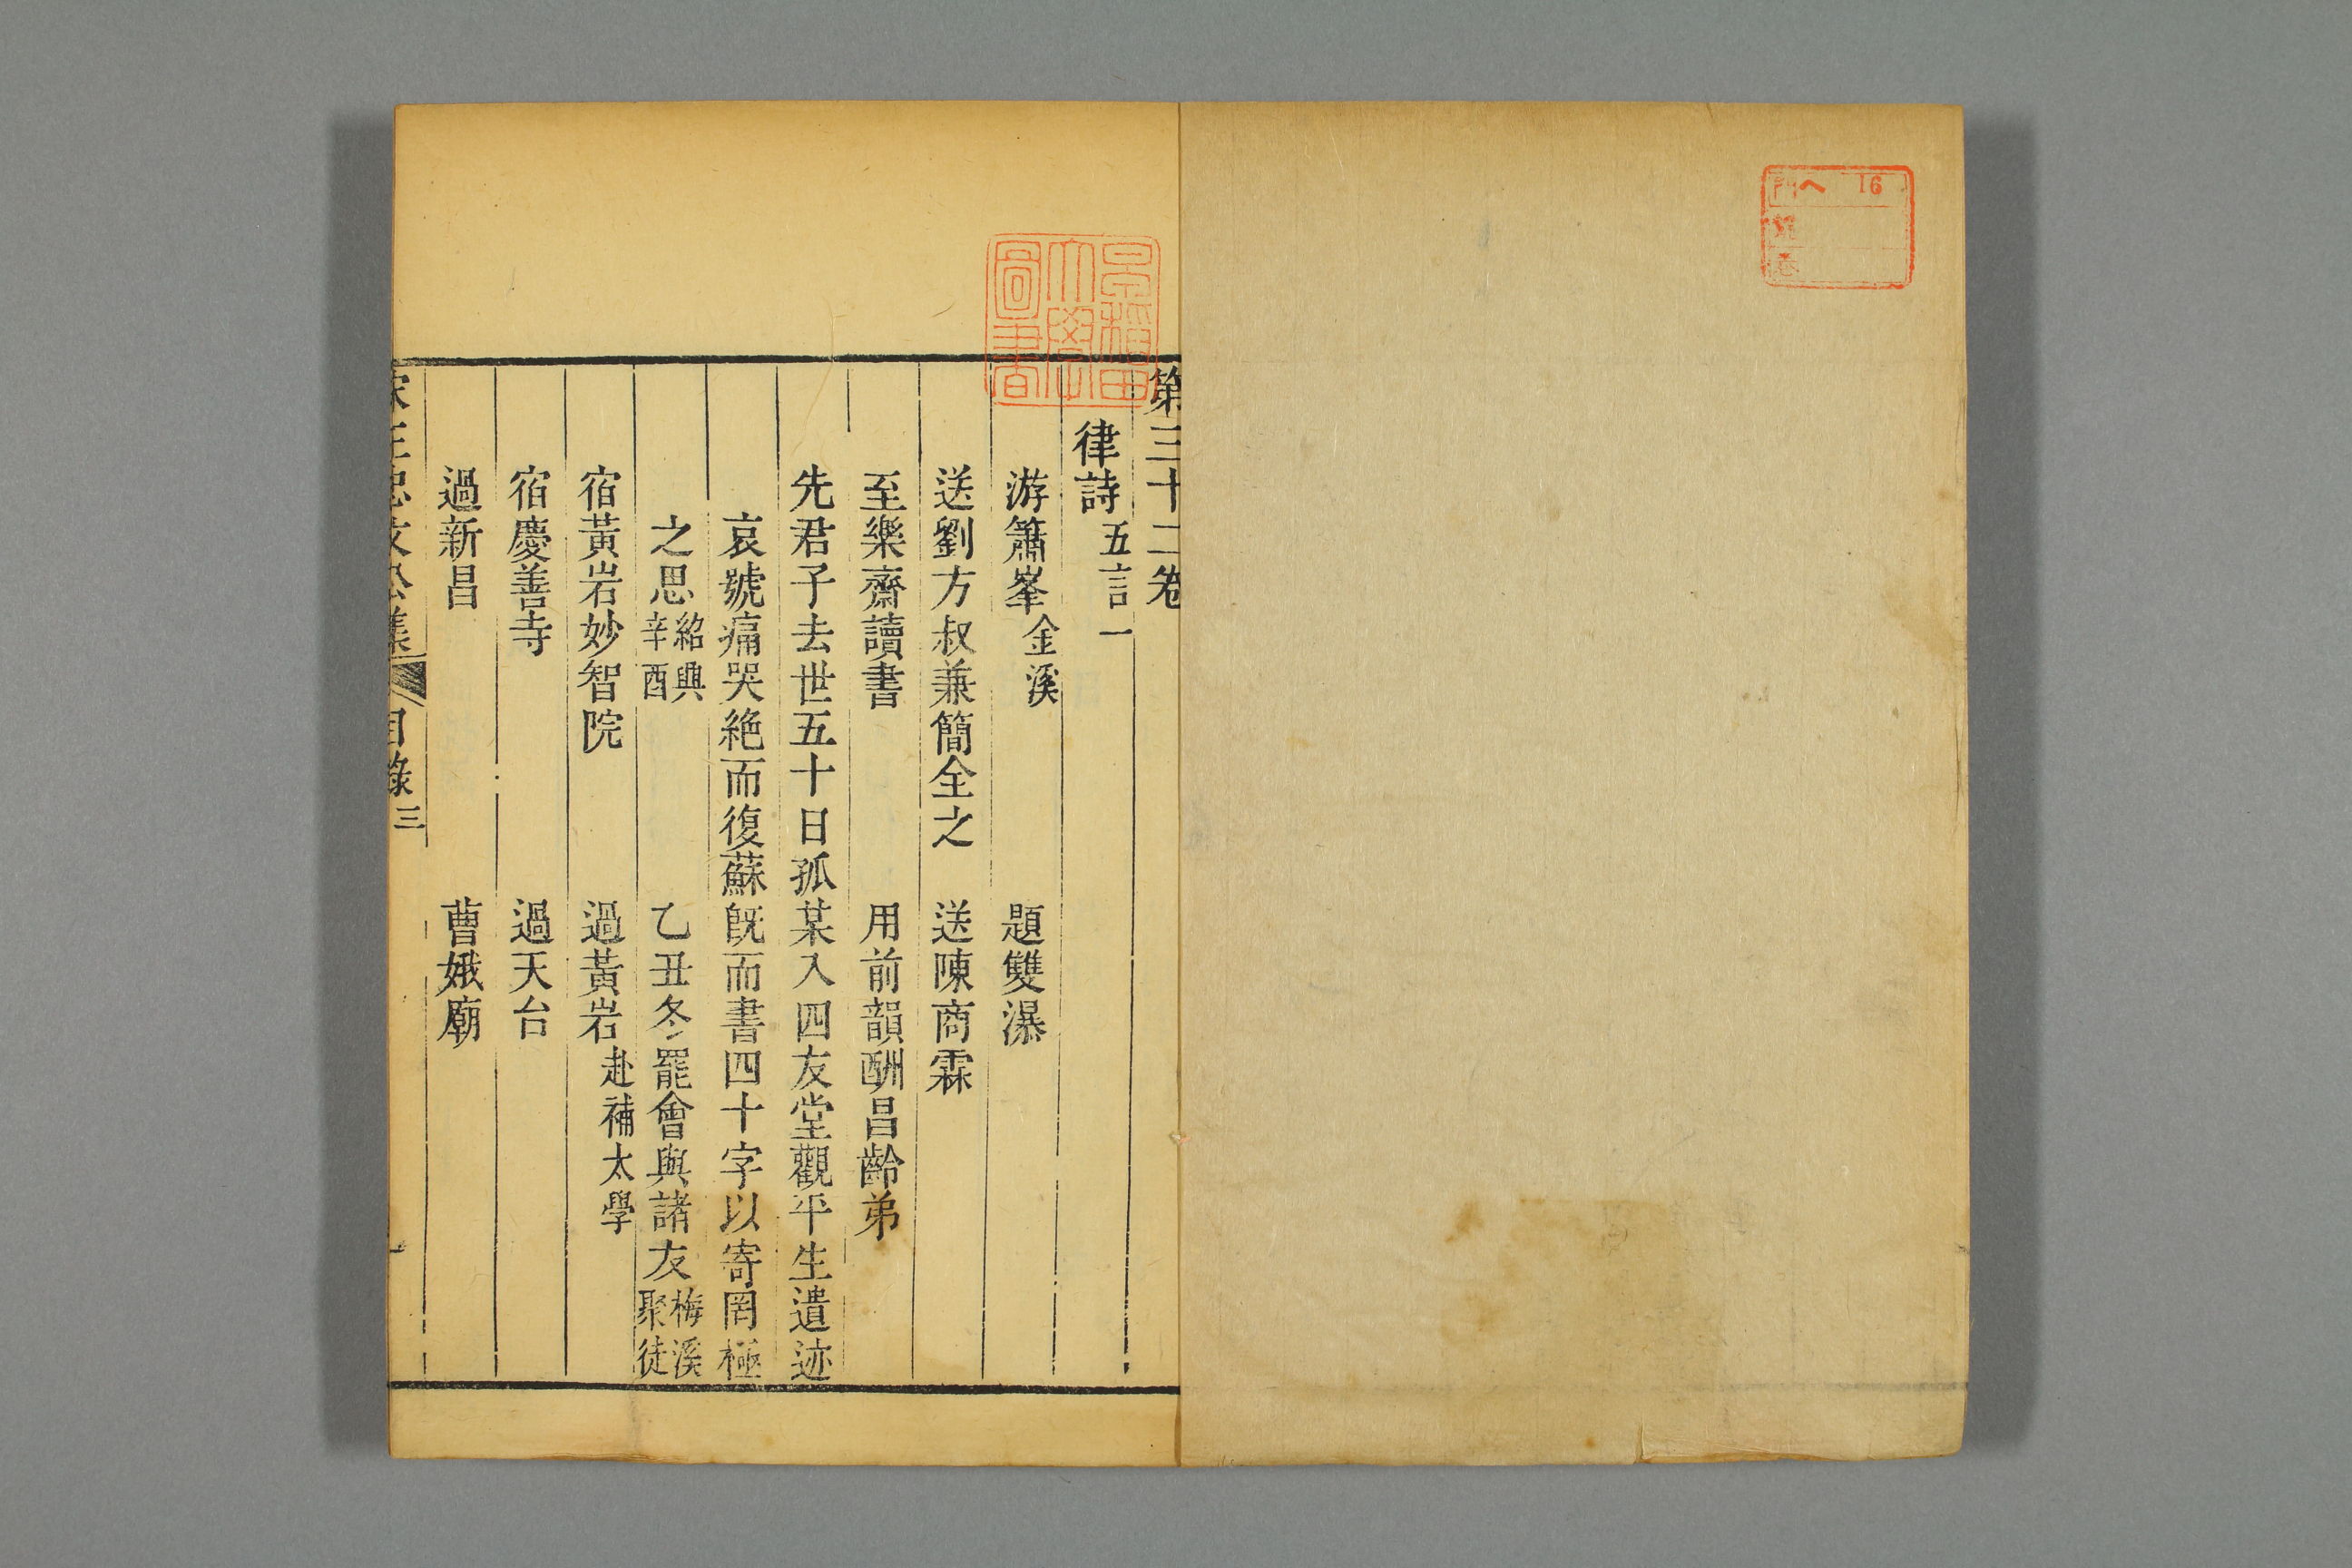 門 ヘ 16
號
卷
早稲田
大學
圖書
第三十二卷
律詩 五言一
游簫峯 金溪 題雙瀑
送劉方叔兼簡全之 送陳商霖
至樂齋讀書 用前韻酬昌齡弟
先君子去世五十日孤某入四友堂觀平生遺迹
哀號痛哭絶而復蘇既而書四十字以寄罔極
之思 紹興辛酉 乙丑冬罷會與諸友 梅溪聚徒
宿黃岩妙智院 過黃岩 赴補太學
宿慶善寺 過天台
過新昌 曹娥廟
宋王忠文公集 目錄三